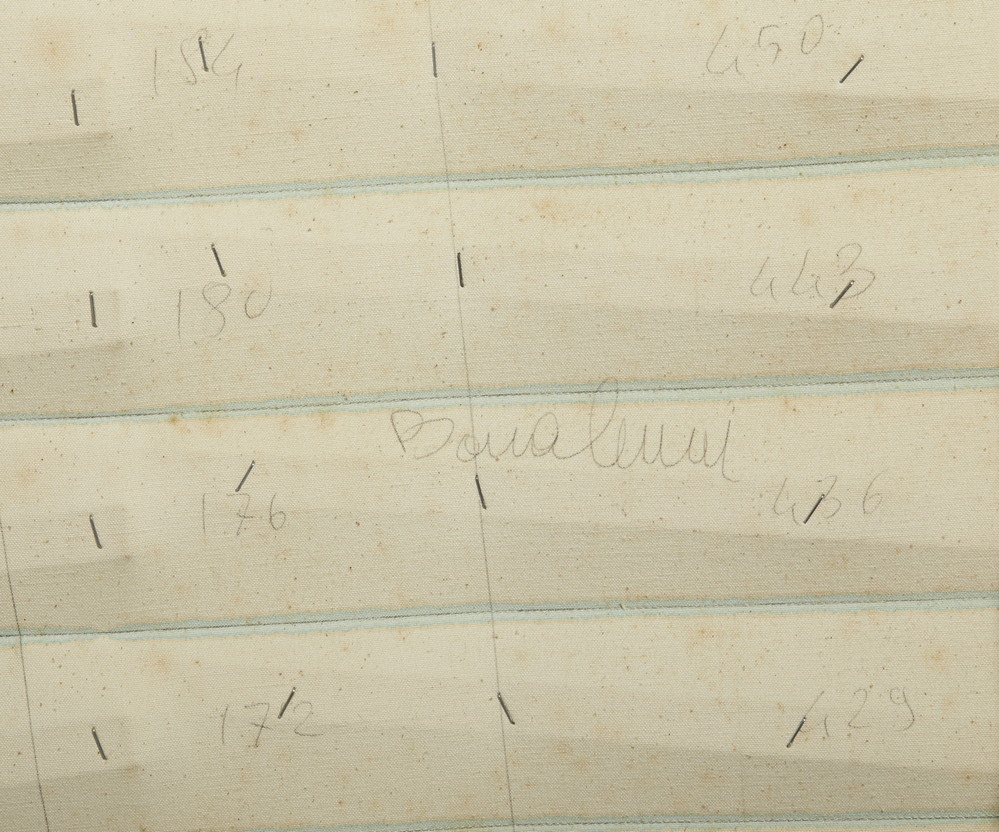 184 450
180 443
Bonalumi
176 436
172 429